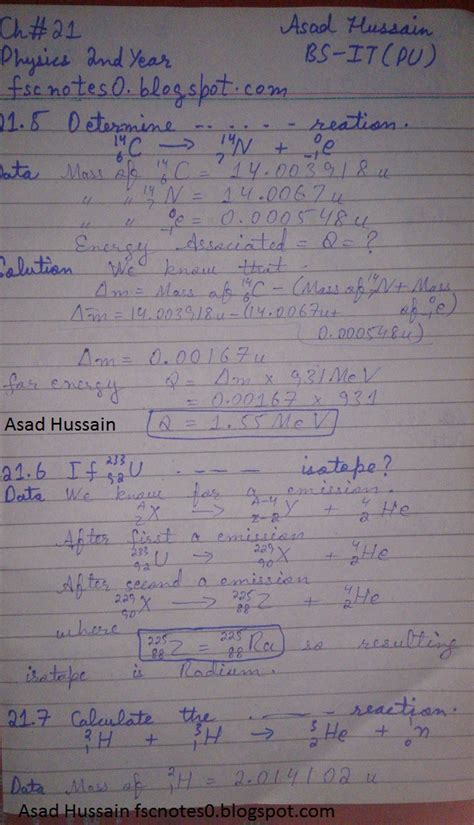 Ch#21 Asad Hussain
Physics 2nd Year BS-IT(PU)
fscnotes0.blogspot.com
21.5 Determine - - - - - reation.
¹⁴₆C → ¹⁴₇N + ⁰₋₁e
Data Mass of ¹⁴₆C = 14.003918u
" " ¹⁴₇N = 14.0067u
" " ⁰₋₁e = 0.000548u
Energy Associated = Q = ?
Solution We know that
Δm = Mass of ¹⁴₆C - (Mass of ¹⁴₇N + Mass of ⁰₋₁e)
Δm = 14.003918u - (14.0067u + 0.000548u)
Δm = 0.00167u
for energy Q = Δm × 931MeV
= 0.00167 × 931
Asad Hussain
Q = 1.55 MeV
21.6 If ²³³₉₂U - - - - isotope?
Data We know for α emission.
ᴬ_ZX → ᴬ⁻⁴_Z₋₂Y + ⁴₂He
After first α emission
²³³₉₂U → ²²⁹₉₀X + ⁴₂He
After second α emission
²²⁹₉₀X → ²²⁵₈₈Z + ⁴₂He
where ²²⁵₈₈Z = ²²⁵₈₈Ra so resulting
isotape is Radium.
21.7 Calculate the - - - - reaction.
²₁H + ³₁H → ³₂He + ¹₀n
Data Mass of ²₁H = 2.014102 u
Asad Hussain fscnotes0.blogspot.com